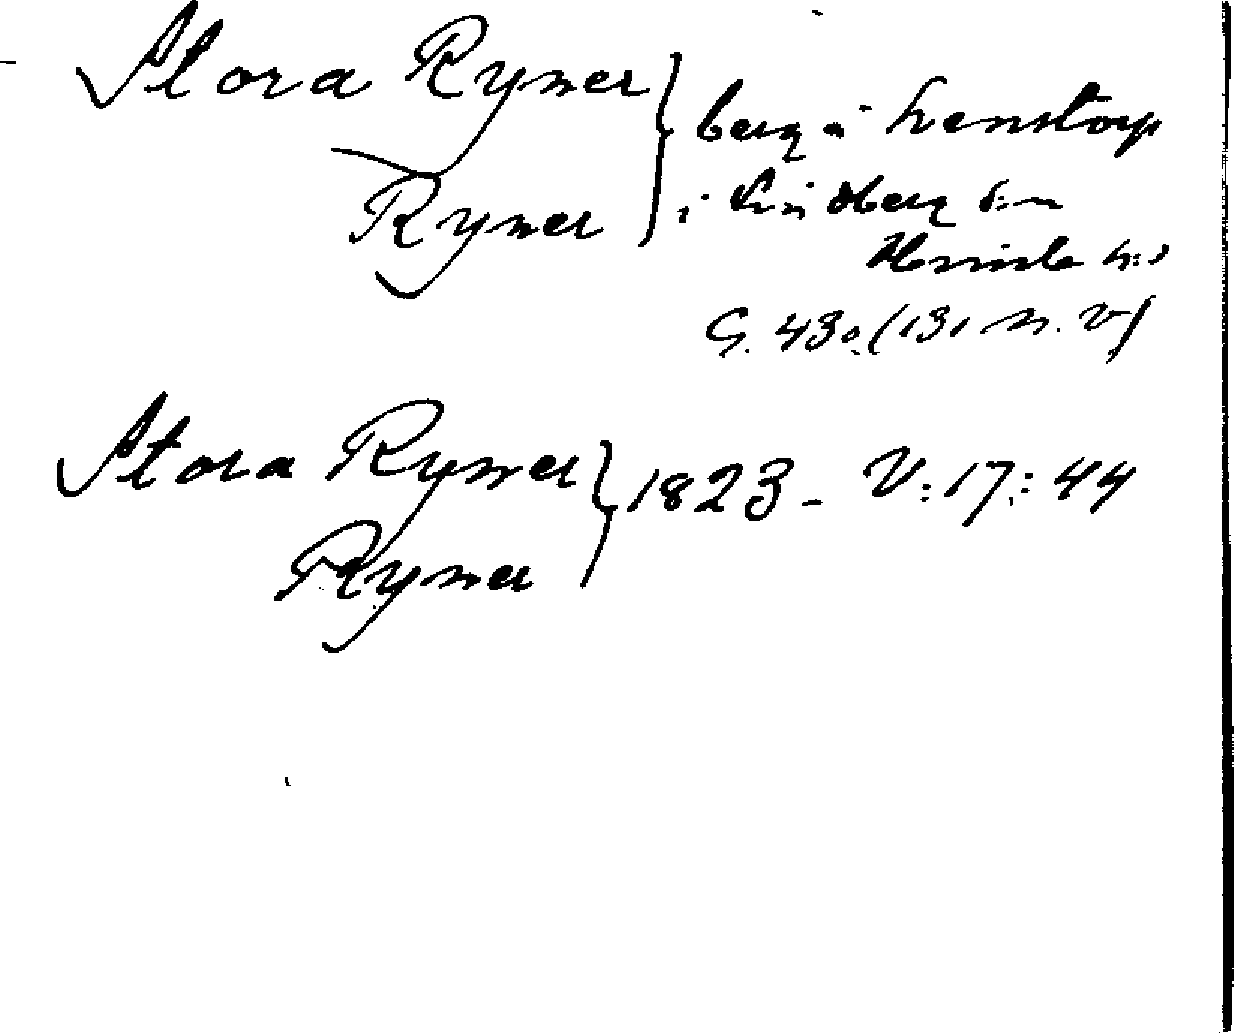 Stora Rymer } berg i Svenstorp
Rymer } i Lindberg s:n
Himle h:d
G. 430 (131 m. v)
Stora Rymer } 1823 - V:17:44
Rymer